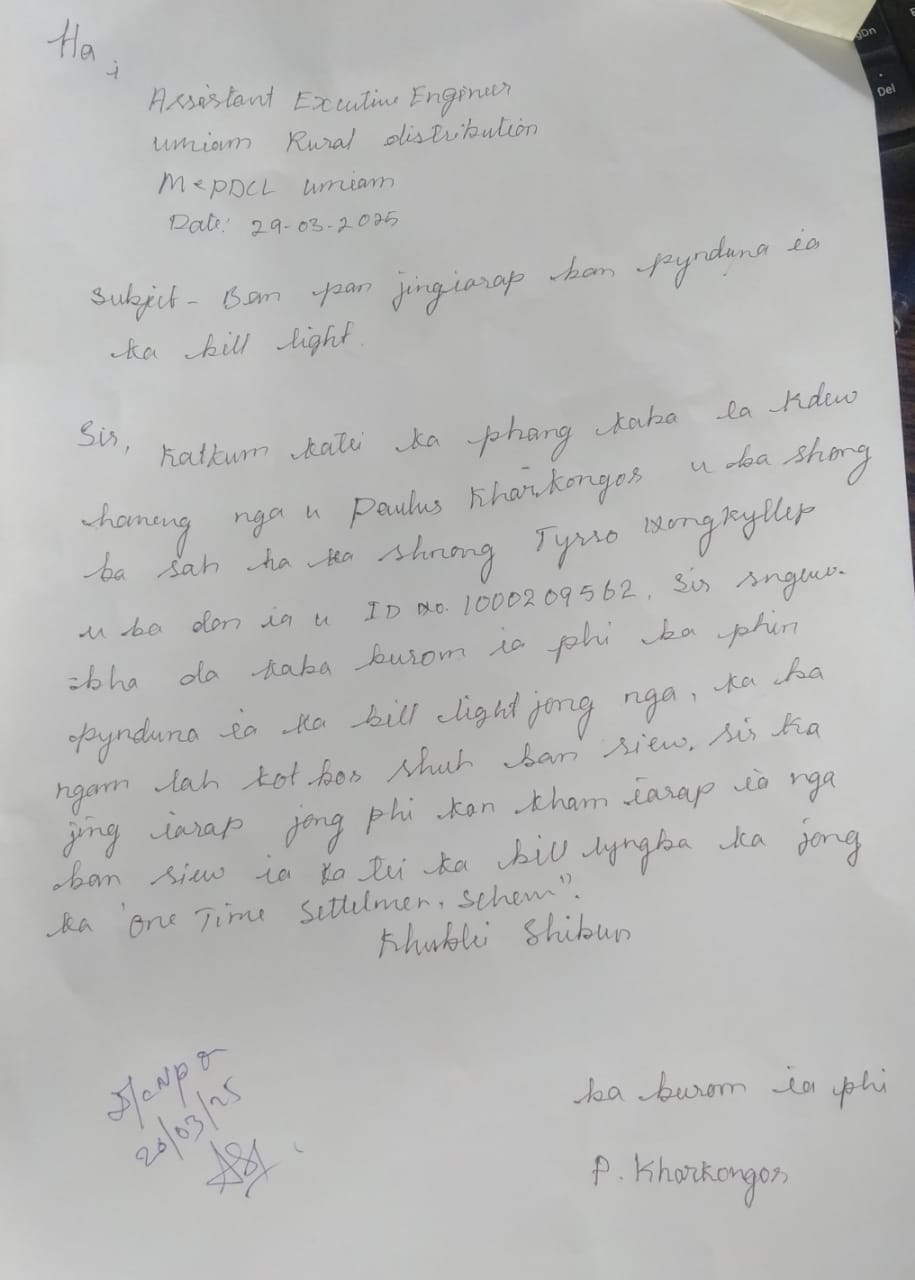 Ha,
Assistant Excutive Engineer
umiam Rural distribution
MePDCL umiam
Date: 29-03-2025
Subject - Ban pan jingiarap ban pynduna ia
ka bill light.
Sir, Katkum katei ka phang kaba la kdew
haneng nga u Paulus Kharkongor u ba shong
ba sah ha ka shnong Tyrso Nongkyllep
u ba don ia u ID No. 1000209562. Sir sngew-
=bha da kaba burom ia phi ba phin
pynduna ia ka bill light jong nga, ka ba
ngam lah kot bor shuh ban siew. Sir ka
jing iarap jong phi kan kham iarap ia nga
ban siew ia ka tei ka bill lyngba ka jong
ka 'One Time Settelmen, Schem".
Khublei Shibun
20/03/25
ba burom ia phi
P. Kharkongor
Del